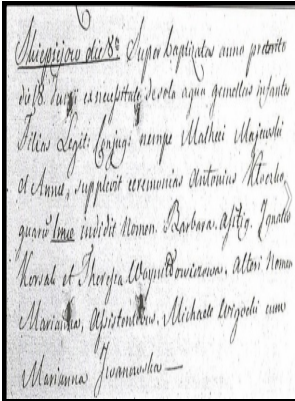 die 8ª Super baptizatas anno praeterito
die 18. Junii ex necessitate de sola aqua gemellas infantes
Filias Legit: Conjug: nempe Mathei Majewskii
et Annae, supplevit ceremonias Antonius
quaru una indidit nomen Barbara. Assistt. Ignatio
Korsak et Theresia Alteri Nomen
Marianna, Assistentibus, Michaele cum
Marianna Iwanowska —